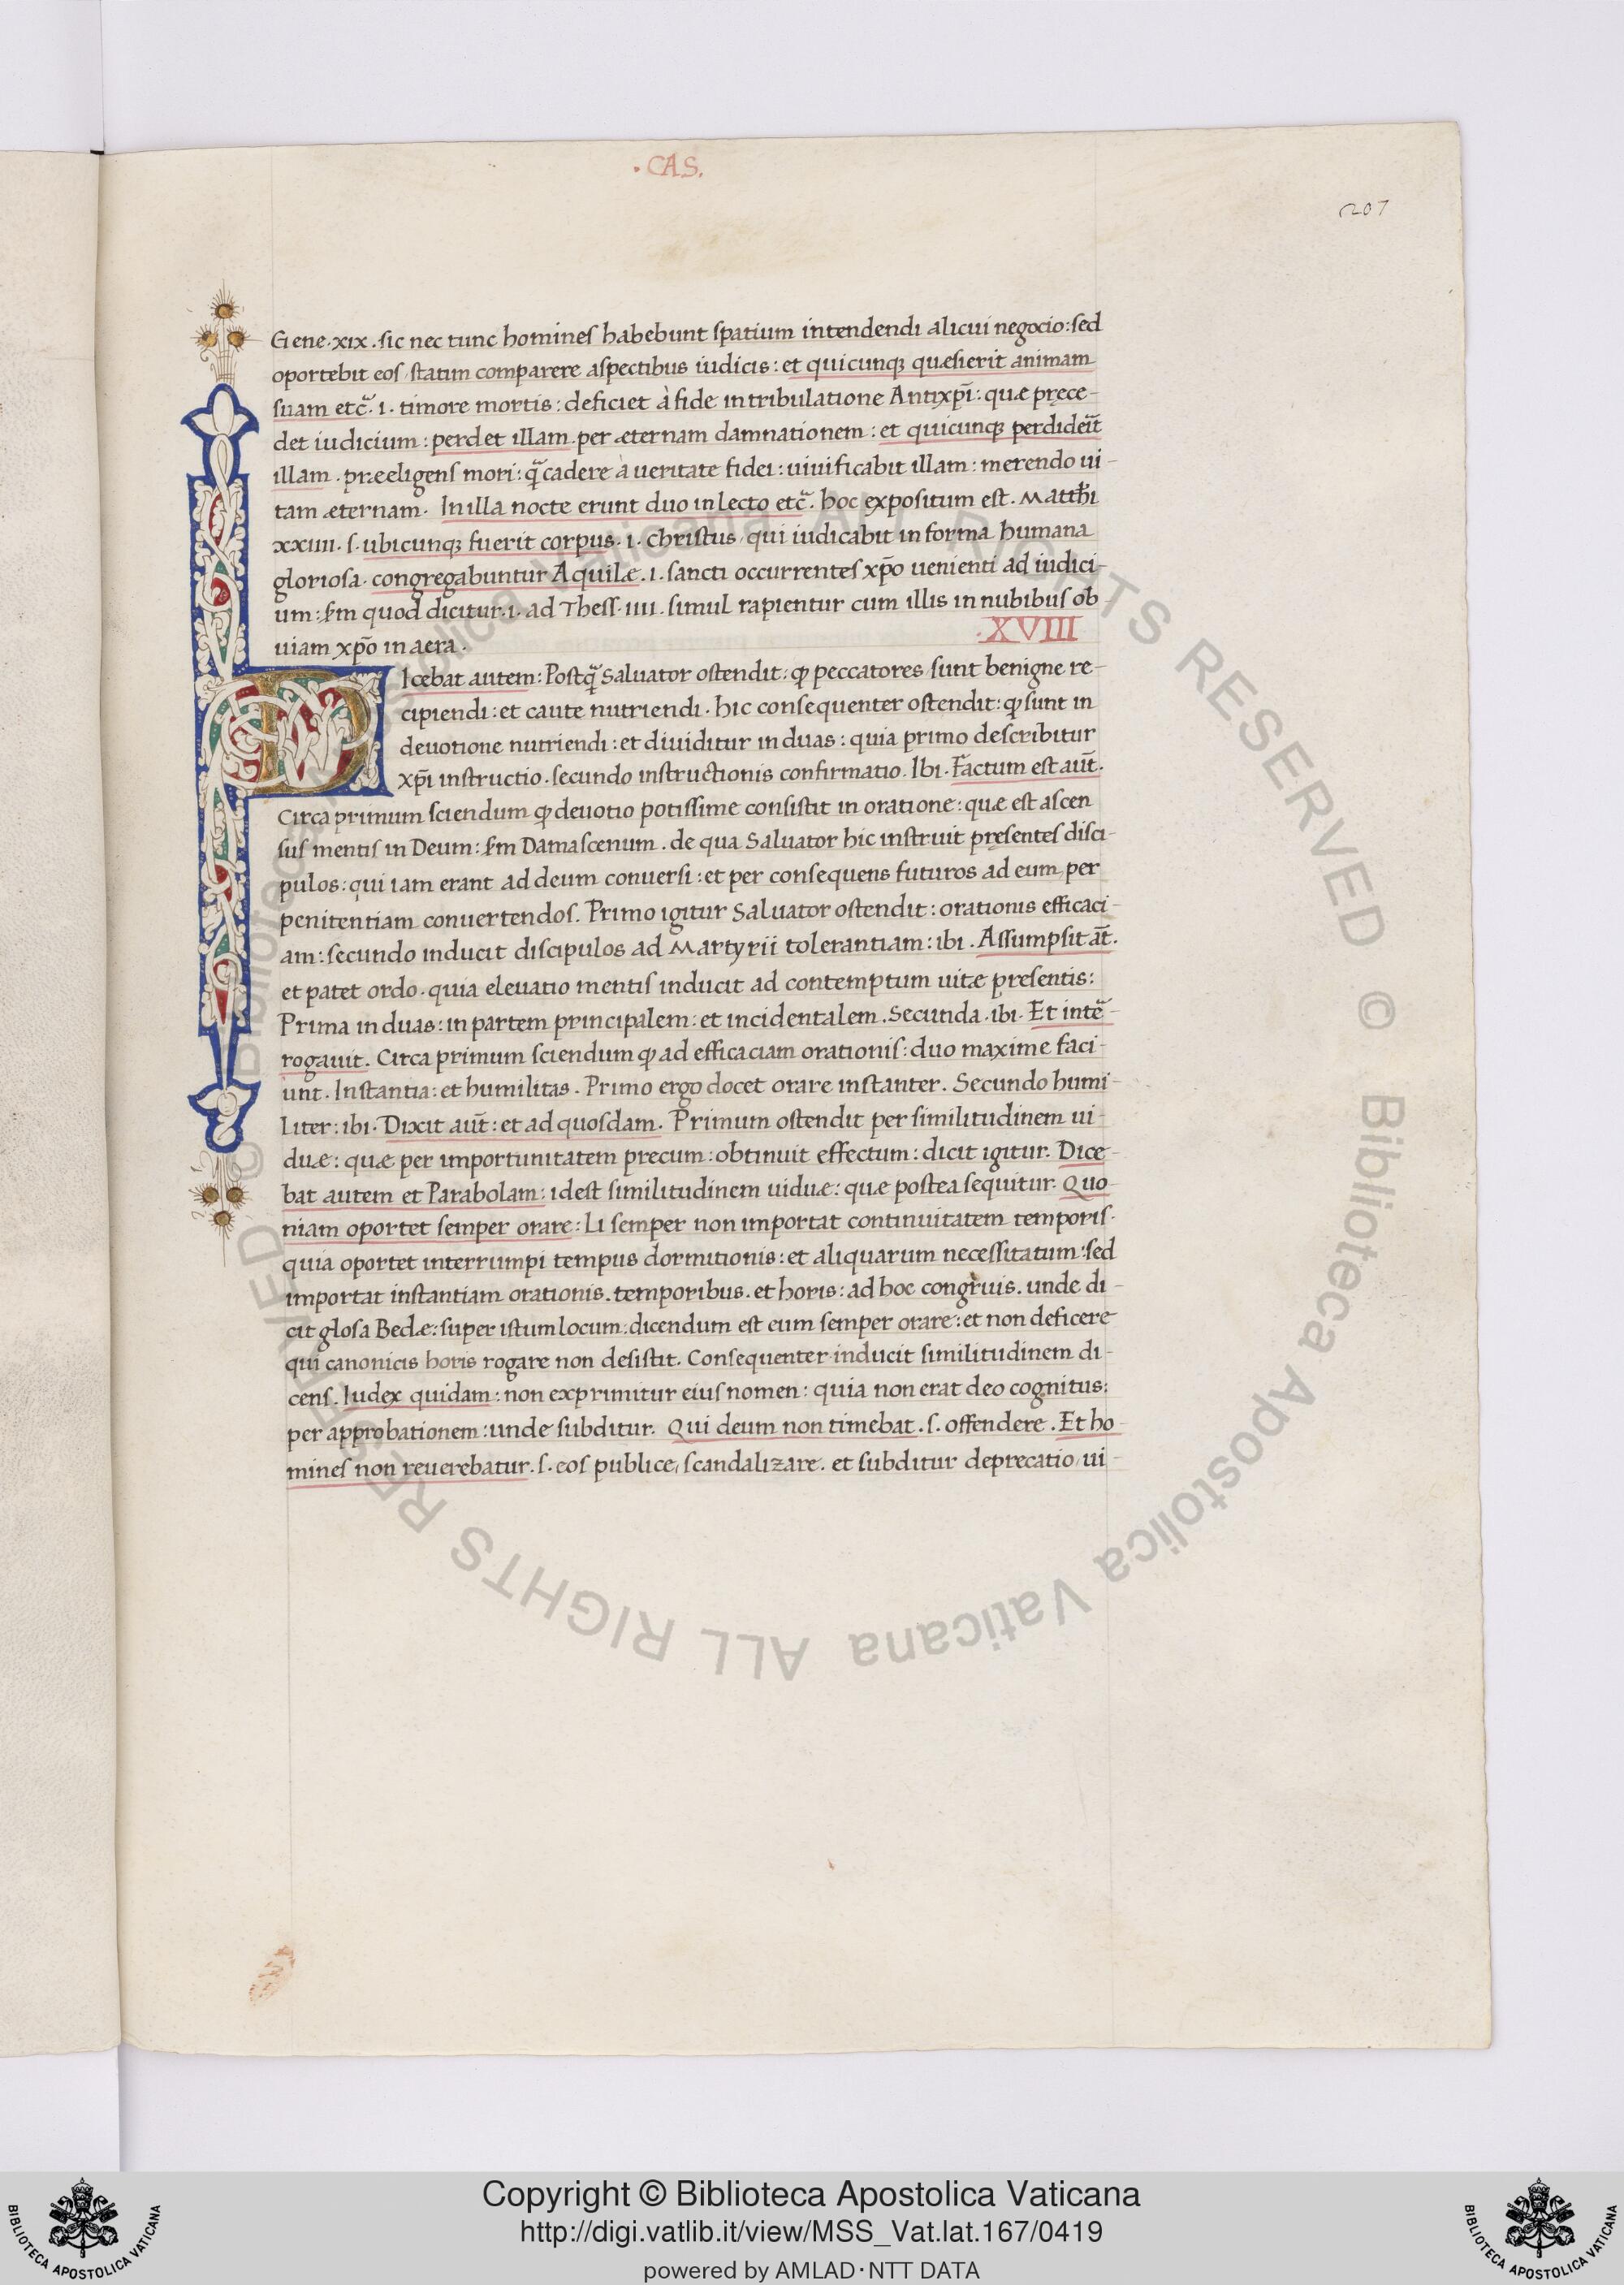 . CAS.
207
Gene . xix . sic nec tunc homines habebunt spatium intendendi alicui negocio : sed
oportebit eos statim comparere aspectibus iudicis : et quicunqꝫ quæsierit animam
suam etc̄ . i . timore mortis : deficiet à fide in tribulatione Antixp̄i : quæ pręce-
det iudicium : perdet illam . per æternam damnationem : et quicunqꝫ perdideīt
illam . præeligens mori : q̄ cadere à ueritate fidei : uiuificabit illam : merendo ui-
tam æternam . In illa nocte erunt duo in lecto etc̄ . hoc expositum est . Matthi
xxiiii . s . ubicunqꝫ fuerit corpus . i . christus , qui iudicabit in forma humana
gloriosa . congregabuntur Aquilæ . i . sancti occurrentes xp̄o uenienti ad iudici-
um : ẜm quod dicitur . i . ad Thess . iiii . simul rapientur cum illis in nubibus ob-
uiam xp̄o in aera .
. XVIII
DIcebat autem : Postq̄ Saluator ostendit : ꝙ peccatores sunt benigne re-
cipiendi : et caute nutriendi . hic consequenter ostendit : ꝙ sunt in
deuotione nutriendi : et diuiditur in duas : quia primo describitur
xp̄i instructio . secundo instructionis confirmatio . Ibi . Factum est aūt .
Circa primum sciendum ꝙ deuotio potissime consistit in oratione : quæ est ascen
sus mentis in Deum : ẜm Damascenum . de qua Saluator hic instruit pręsentes disci-
pulos : qui iam erant ad deum conuersi : et per consequens futuros ad eum , per
penitentiam conuertendos . Primo igitur Saluator ostendit : orationis efficaci-
am : secundo inducit discipulos ad Martyrii tolerantiam : ibi . Assumpsit āt .
et patet ordo . quia eleuatio mentis inducit ad contemptum uitæ pręsentis :
Prima in duas : in partem principalem : et incidentalem . Secunda . ibi . Et intē-
rogauit . Circa primum sciendum ꝙ ad efficaciam orationis : duo maxime faci-
unt . Instantia : et humilitas . Primo ergo docet orare instanter . Secundo humi-
liter : ibi . Dixit aūt : et ad quosdam . Primum ostendit per similitudinem ui-
duæ : quæ per importunitatem precum : obtinuit effectum : dicit igitur . Dice-
bat autem et Parabolam : idest similitudinem uiduæ : quæ postea sequitur . Quo-
niam oportet semper orare : Li semper non importat continuitatem temporis .
quia oportet interrumpi tempus dormitionis : et aliquarum necessitatum : sed
importat instantiam orationis . temporibus . et horis : ad hoc congruis . unde di-
cit glosa Bedæ : super istum locum : dicendum est eum semper orare : et non deficere
qui canonicis horis rogare non desistit . Consequenter inducit similitudinem di-
cens . Iudex quidam : non exprimitur eius nomen : quia non erat deo cognitus :
per approbationem : unde subditur . Qui deum non timebat . s . offendere . Et ho-
mines non reuerebatur . s . eos publice , scandalizare . et subditur deprecatio , ui-
© Biblioteca Apostolica Vaticana ALL RIGHTS RESERVED © Biblioteca Apostolica Vaticana ALL RIGHTS RESERVED
Copyright © Biblioteca Apostolica Vaticana
http://digi.vatlib.it/view/MSS_Vat.lat.167/0419
powered by AMLAD·NTT DATA
BIBLIOTECA APOSTOLICA VATICANA
BIBLIOTECA APOSTOLICA VATICANA